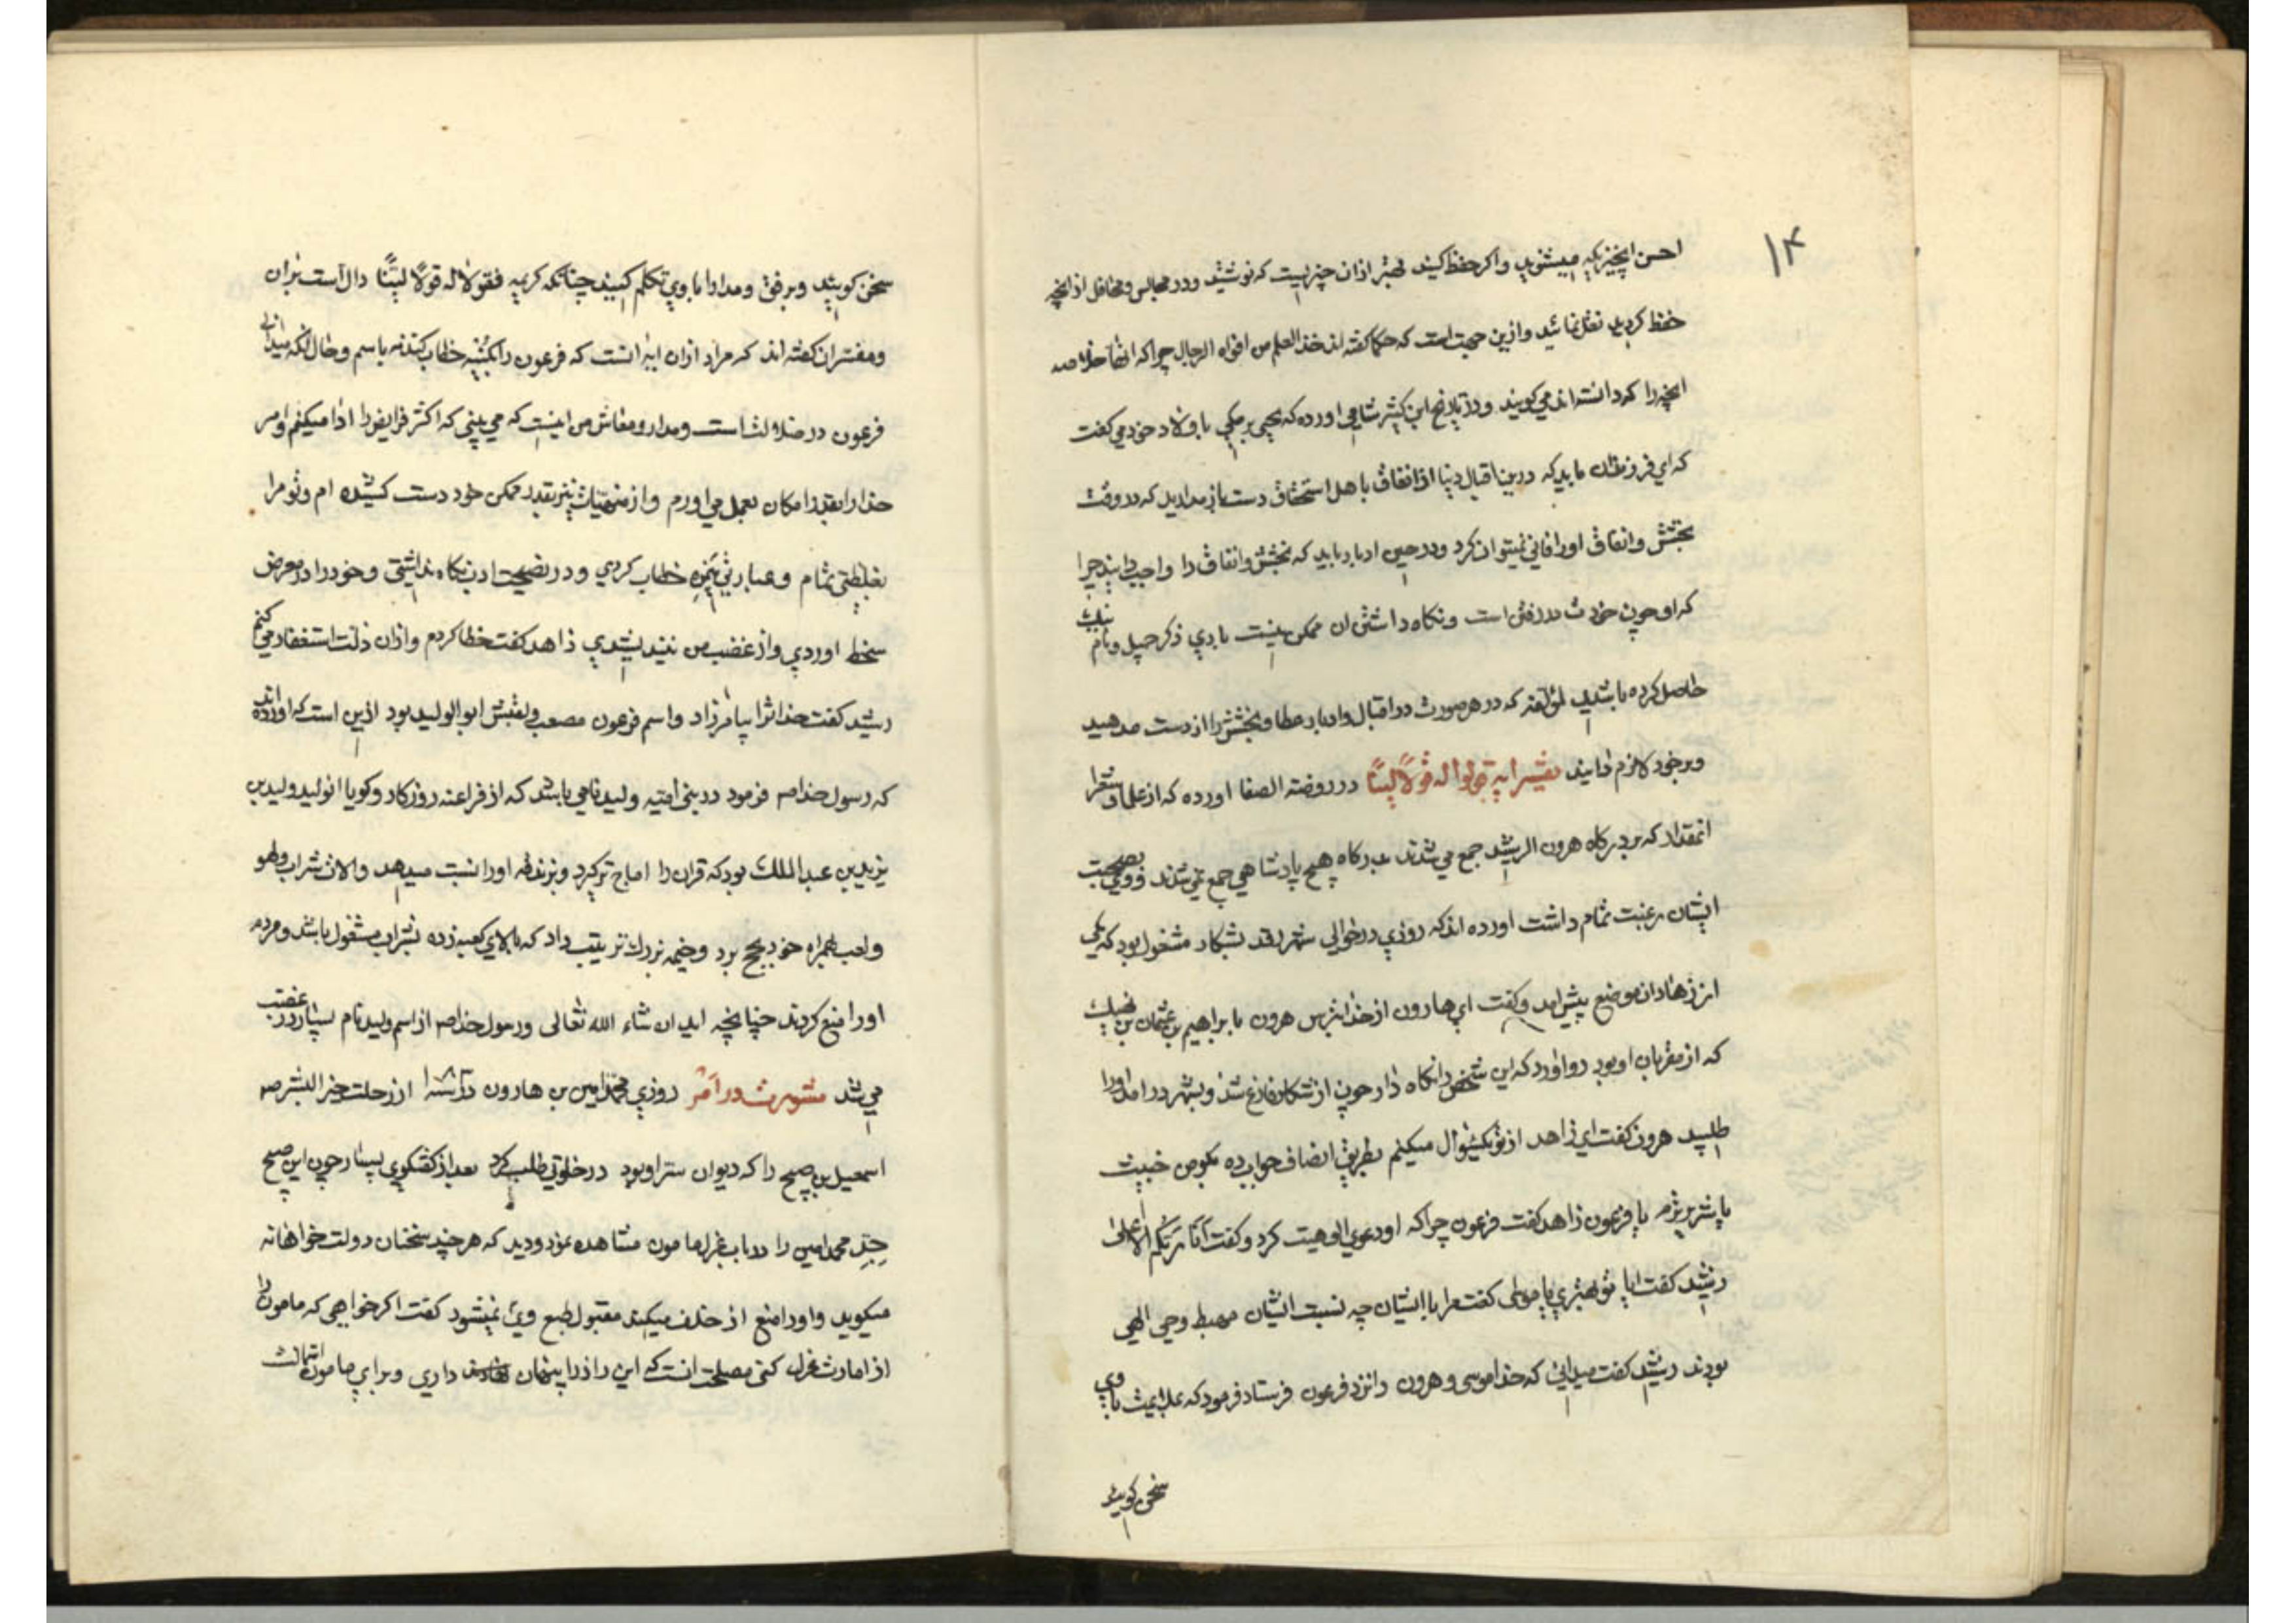 ۱۴
احسن آنچیزیکه میشنوید و اکر حفظ کنید بهتر از ان چیزیست که نوشتید و در مجالس و محافل از انچه
حفظ کردید نقل نمائید و ازین جهت است که حکما کفته اند خذ العلم من افواه الرجال چرا که انها خلاصه
انچه را که دانسته اند می کویند و در تاریخ ابن کثیر شامی اورده که یحیی برمکی با ولاد خود می کفت
که ای فرزندان باید که درین اقبال دنیا از انفاق باهل استحقاق دست باز مدارید که در وقت
بخشش و انفاق اورا فانی نمیتوان کرد و در حین ادبار باید که بخشش و انفاق را واجب دانید چرا
که او چون خودش در رفتن است و نکاه داشتن ان ممکن نیست باری ذکر جمیل و نام نیک
حاصل کرده باشید لمؤلفه که در هر صورت در اقبال و ادبار عطا و بخشش را از دست مدهید
و بر خود لازم دانید تفسیر ایه قولوا له قولاً لیناً در روضته الصفا اورده که از علما و شعرا
انمقدار که بر درکاه هرون الرشید جمع می شدند بدرکاه هیچ پادشاهی جمع نمی شدند و وی بصحبت
ایشان رغبت تمام داشت اورده اند که روزی در حوالی شهر رقه بشکار مشغول بود که یکی
از زهادان موضع پیش امد و کفت ای هارون از خدا بترس هرون با براهیم بن عثمان بن نهیک
که از مقربان او بود رو اورد که این شخص را نکاه دار چون از شکار فارغ شد و بشهر در امد اورا
طلبید هرون کفت ای زاهد از تو یکسؤال میکنم بطریق انصاف جواب ده بکو من خبیث
یا شریر ترم یا فرعون زاهد کفت فرعون چرا که او دعوی الوهیت کرد و کفت اَنَا رَبُّکُم الاَعلی
رشید کفت ایا تو بهتری یا موسی کفت مرا با ایشان چه نسبت ایشان مهبط وحی الهی
بودند رشید کفت میدانی که خدا موسی و هرون را نزد فرعون فرستاد فرمود که بملایمت با وی
سخن کویید
سخن کویید و برفق و مدارا با وی تکلم کنید چنانکه کریمه فقولا له قولاً لیناً دال است بر ان
و مفسران کفته اند که مراد ازان ایه انست که فرعون را بکنیه خطاب کنند نه باسم و حال انکه میدانی
فرعون در ضلالت است و مدار و معاش من اینست که می بینی که اکثر فرایض را ادا میکنم و امر
خدا را بقدر امکان بعمل می اورم و از منهیات نیز بقدر ممکن خود دست کشیده ام و تو مرا
بغلظتی تمام و عبارتی خطاب کردی و در نصیحت ادب نکاه نداشتی و خود را در معرض
سخط اوردی و از غضب من نیندیشیدی زاهد کفت خطا کردم و ازان ذلت استغفار می کنم
رشید کفت خدا ترا بیامرزاد و اسم فرعون مصعب و لقبش ابو الولید بود ازین است که اورده اند
که رسول خدا صم فرمود در بنی امیه ولید نامی باشد که از فراعنه روزکار و کویا انولید ولید بن
یزید بن عبد الملک بود که قران را اماج تیر کرد و بزندقه اورا نسبت میدهد و الات شراب و لهو
و لعب همراه خود بحج برد و خیمه بزرک ترتیب داد که بالای کعبه زده بشراب مشغول باشد و مردم
اورا منع کردند چنانچه اید ان شاء الله تعالی و رسول خدا صم از اسم ولید نام بسیار در غضب
می شد مشورت در امر روزی محمد امین بن هارون از رحلت خیر البشر صم
اسمعیل بن صبیح را که دیوان سر او بود در خلوتی طلب کرد بعد از کفتکوی بسیار چون ابن صبیح
جد محمد امین را در باب عزل مامون مشاهده نمود و دید که هر چند سخنان دولت خواهانه
میکوید و اورا منع از خلف میکند مقبول طبع وی نمیشود کفت اکر خواهی که مامون را
از امارت عزل کنی مصلحت انست که این راز را پنهان داری و برای مامون استمالت